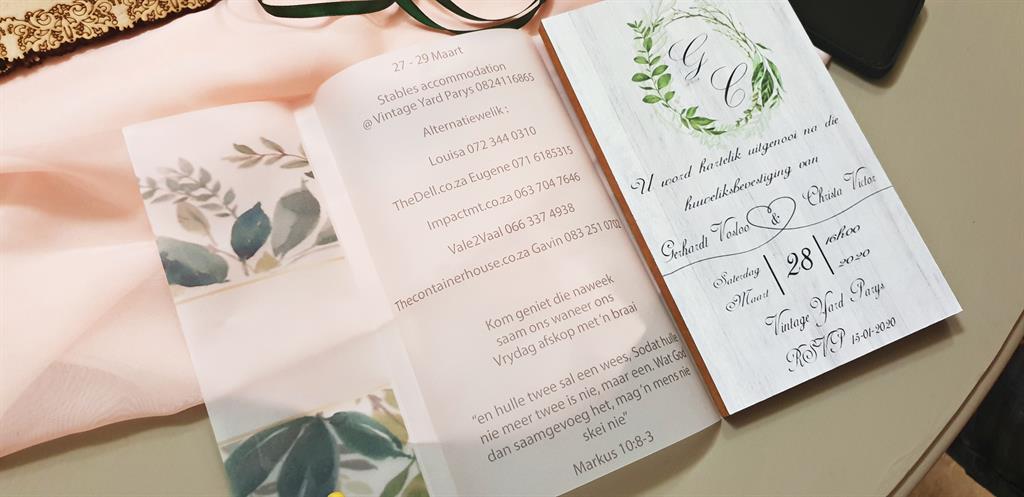 27 - 29 Maart
Stables accommodation
@ Vintage Yard Parys 0824116865
Alternatiewelik :
Louisa 072 344 0310
TheDell.co.za Eugene 071 6185315
Impactmt.co.za 063 704 7646
Vale2Vaal 066 337 4938
Thecontainerhouse.co.za Gavin 083 251 0702
Kom geniet die naweek
saam ons waneer ons
Vrydag afskop met 'n braai
"en hulle twee sal een wees, Sodat hulle
nie meer twee is nie, maar een. Wat God
dan saamgevoeg het, mag 'n mens nie
skei nie"
Markus 10:8-3
G C
U word hartelik uitgenooi na die
huweliksbevestiging van
Gerhardt Vosloo & Christa Victor
Saterdag
Maart
28
16h00
2020
Vintage Yard Parys
RSVP 15-01-2020